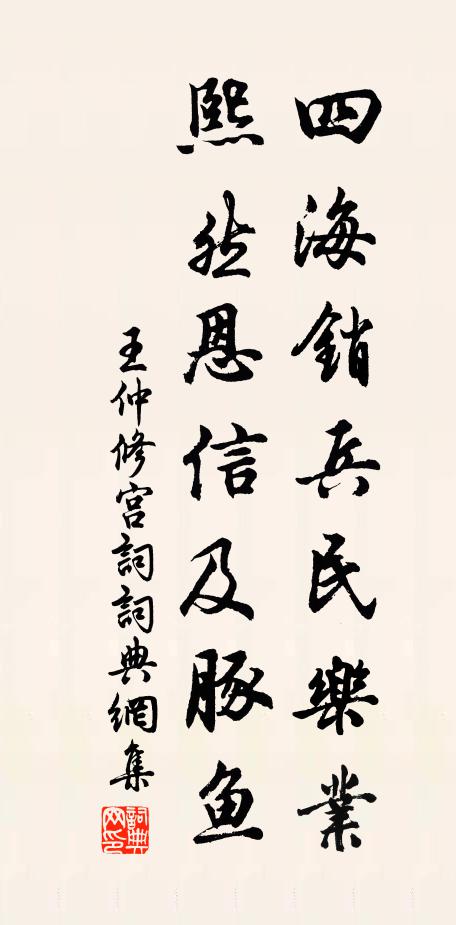 四海銷兵民樂業
熙然恩信及豚鱼
王仲修宮詞詞典網集
詞典网印